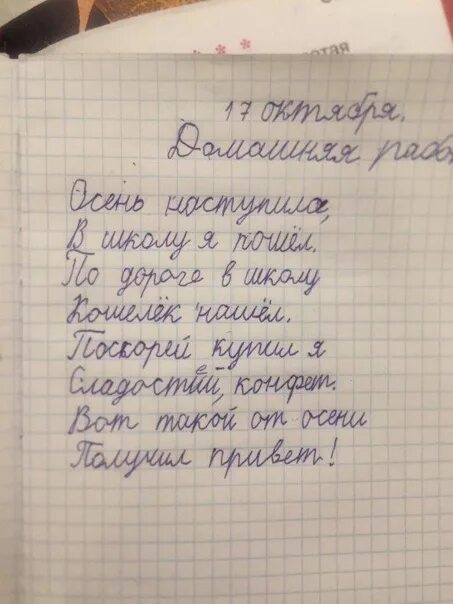 * * *
17 октября.
Домашняя рабо
Осень наступила,
В школу я пошёл.
По дороге в школу
Кошелёк нашёл.
Поскорей купил я
Сладостей, конфет.
Вот такой от осени
Получил привет!